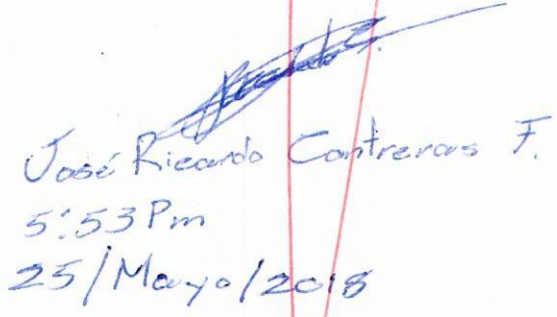 José Ricardo Contreras F.
5:53 Pm
25/Mayo/2018